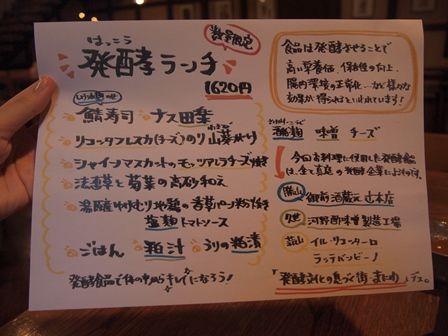 はっこう
発酵ランチ
数量限定
1620円
しょうゆ麹のせ
鯖寿司 ナス田楽
リコッタフレスカ(チーズ)のり山葵めり
シャインマスカットのモッツアレラチーズ焼き
法蓮草と菊菜の高砂和え
湯原ゆけむり家鶏の香草パン粉焼き
塩麹トマトソース
ごはん 粕汁 うりの粕漬
発酵食品で体の中からキレイになろう!
食品は発酵させることで
高い栄養価、保存性の向上、
腸内環境の正常化…など様々な
効果が得られるといわれています!
酒麹 味噌 チーズ
今回お料理に使用した発酵食品
は、全て真庭の発酵企業によるものです。
勝山 御前酒蔵元 辻本店
久世 河野酢味噌製造工場
蒜山 イル・リコッターロ
ラッテバンビーノ
発酵文化の息づく街 まにわ デス。